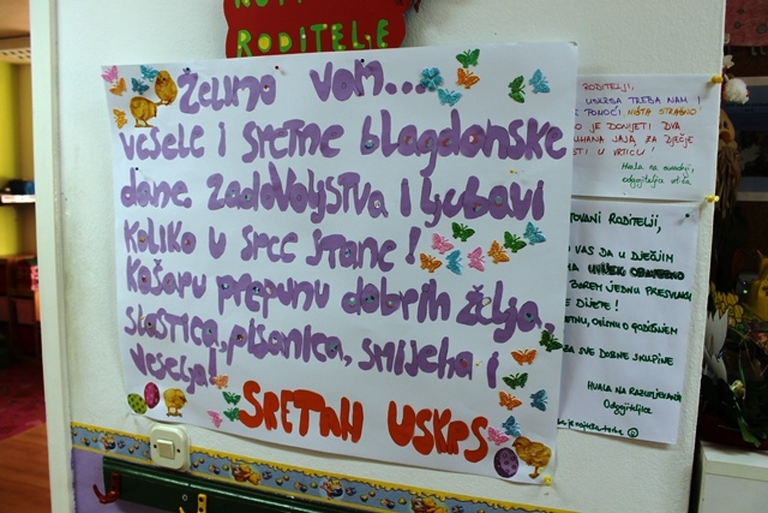 RODITELJE
ŽELIMO VAM...
VESELE I SRETNE BLAGDANSKE
DANE ZADOVOLJSTVA I LJUBAVI
KOLIKO U SRCE STANE!
KOŠARU PREPUNU DOBRIH ŽELJA,
SLASTICA, PISANICA, SMIJEHA I
VESELJA!
SRETAN USKRS
RODITELJI,
TREBA NAM!
POMOĆI, NIŠTA STRAŠNO
JE DONIJETI DVA
KUHANA JAJA ZA DJEČJE
U VRTIĆU!
Hvala na suradnji,
RODITELJI,
VAS DA U DJEČJIM
BAREM JEDNU PRESVLAKU
DIJETE!
OVISNO O GODIŠNJEM
ZA SVE DOBNE SKUPINE
HVALA NA RAZUMIJEVANJU
Odgojiteljice